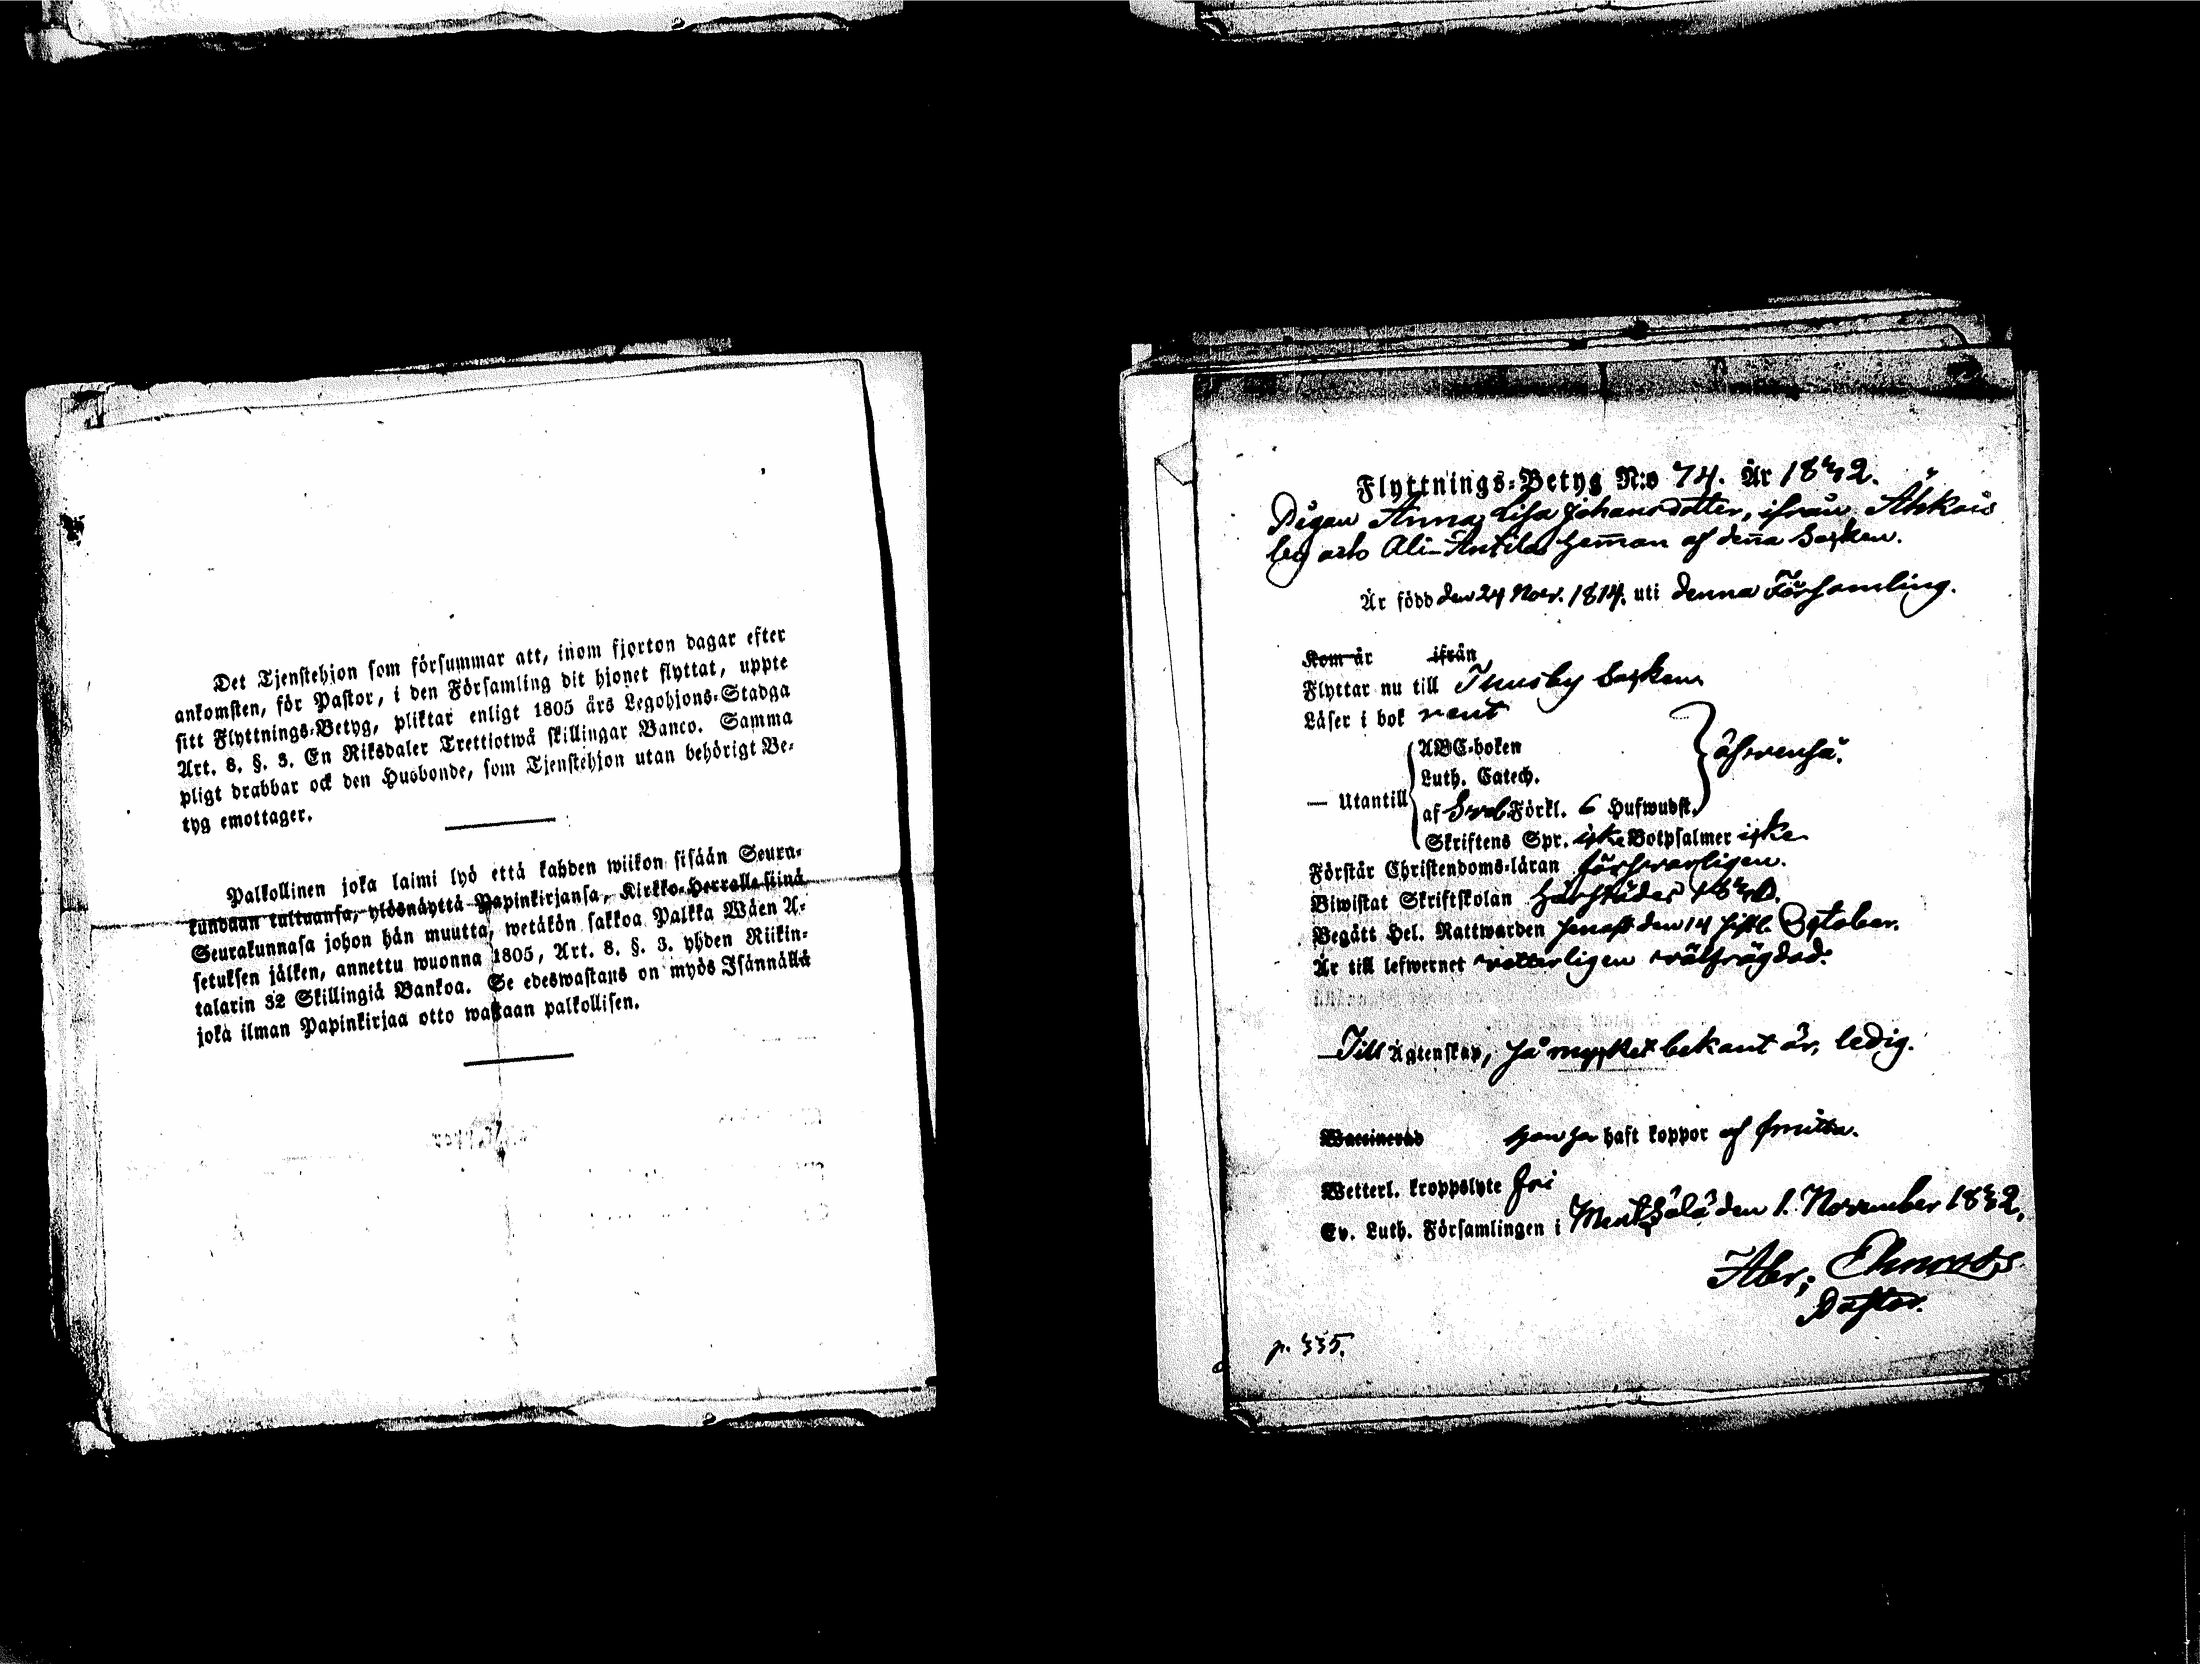 Det Tjenstehjon som försummar att, inom fjorton dagar efter
ankomsten, för Pastor, i den Församling dit hjonet flyttat, uppte
sitt Flyttnings-Betyg, pliktar enligt 1805 års Legohjons-Stadga
Art. 8. §. 3. En Riksdaler Trettiotwå skillingar Banco. Samma
pligt drabbar ock den Husbonde, som Tjenstehjon utan behörigt Be-
tyg emottager.
Palkollinen joka laimi lyö että kahden wiikon sisään Seura-
kundaan tultuansa, ylösnäyttä Papinkirjansa, Kirkko-Herralle siinä
Seurakunnasa johon hän muutta, wetäkön sakkoa Palkka Wäen A-
setuksen jälken, annettu wuonna 1805, Art. 8. §. 3. yhden Riikin-
talarin 32 Skillingiä Bankoa. Se edeswastaus on myös Isännällä
joka ilman Papinkirjaa otto wastaan palkollisen.
Flyttnings-Betyg N:o 74. År 1842.
Pigan Anna Lisa Johansdotter, ifrån
Ali-Anttila heman af denna Socken.
Är född den 24 Nov. 1814. uti denna Församling.
Kom år ifrån
Flyttar nu till Thusby Socken
Läser i bok rent
ABC-boken
Luth. Catech.
— Utantill af Förkl. 6 Hufwudst.
Skriftens Spr. icke Botpsalmer icke
Förstår Christendoms-läran försvarligen.
Biwistat Skriftskolan härstädes 1842.
Begått Hel. Nattwarden senast den 14 sistl. October.
Är till lefwernet wetterligen wälfrägdad.
Till Ägtenskap, så mycket bekant är, ledig.
Waccinerad hon har haft koppor af smitta.
Wetterl. kroppslyte fri
Ev. Luth. Församlingen i Mentsälä den 1. November 1842.
Abr;
Pastor.
p. 335.